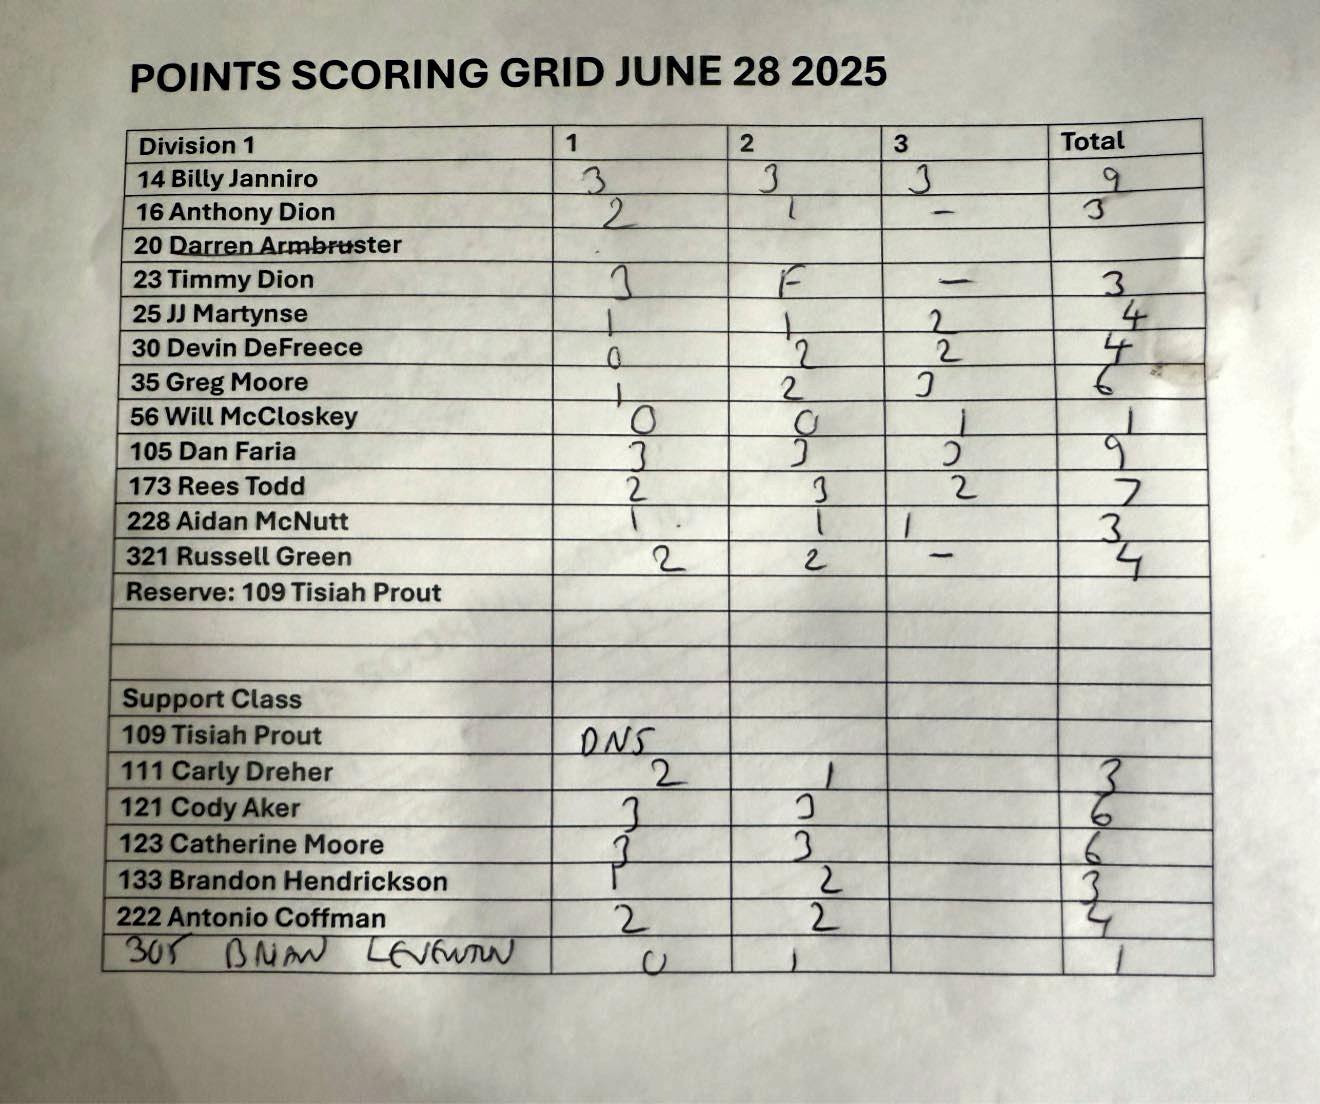 POINTS SCORING GRID JUNE 28 2025
Division 1 1 2 3 Total
14 Billy Janniro 3 3 3 9
16 Anthony Dion 2 1 – 3
20 Darren Armbruster
23 Timmy Dion 3 F – 3
25 JJ Martynse 1 1 2 4
30 Devin DeFreece 0 2 2 4
35 Greg Moore 1 2 3 6
56 Will McCloskey 0 0 1 1
105 Dan Faria 3 3 3 9
173 Rees Todd 2 3 2 7
228 Aidan McNutt 1 1 1 3
321 Russell Green 2 2 – 4
Reserve: 109 Tisiah Prout
Support Class
109 Tisiah Prout DNS
111 Carly Dreher 2 1 3
121 Cody Aker 3 3 6
123 Catherine Moore 3 3 6
133 Brandon Hendrickson 1 2 3
222 Antonio Coffman 2 2 4
305 BRIAN 0 1 1